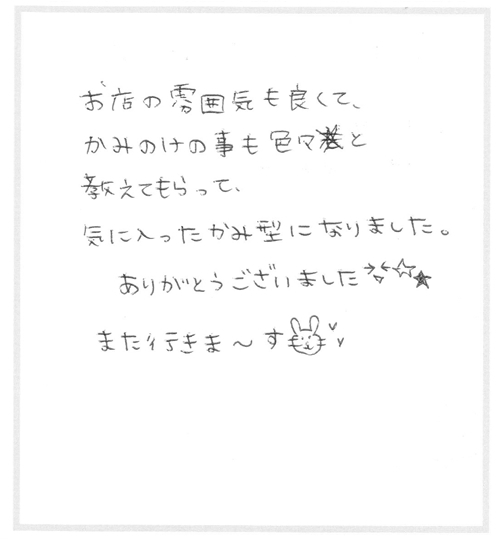 お店の雰囲気も良くて、
かみのけの事も色々と
教えてもらって、
気に入ったかみ型になりました。
ありがとうございました
また行きま〜す